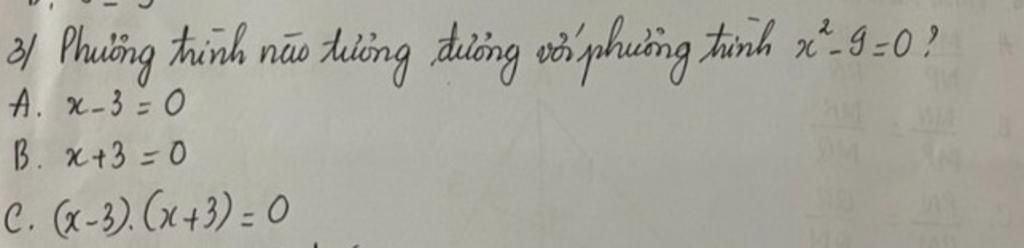 3/ Phương trình nào tương đương với phương trình x² - 9 = 0 ?
A. x - 3 = 0
B. x + 3 = 0
C. (x - 3). (x + 3) = 0